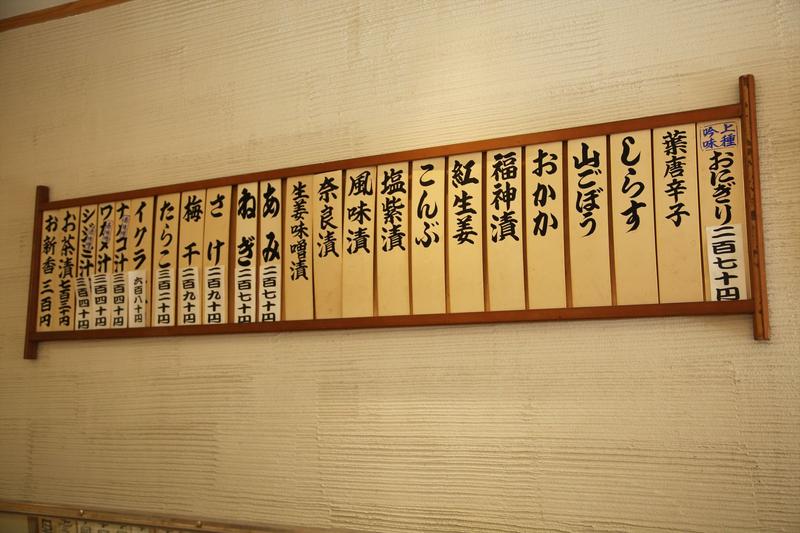 上種
吟味
おにぎり 二百七十円
葉唐辛子
しらす
山ごぼう
おかか
福神漬
紅生姜
こんぶ
塩紫漬
風味漬
奈良漬
生姜味噌漬
あみ 二百七十円
ねぎ 二百七十円
さけ 二百九十円
梅干 二百九十円
たらこ 三百二十円
イクラ 六百八十円
ナメコ汁 三百四十円
ワカメ汁 三百四十円
シジミ汁 三百四十円
お茶漬 七百三十円
お新香 三百円